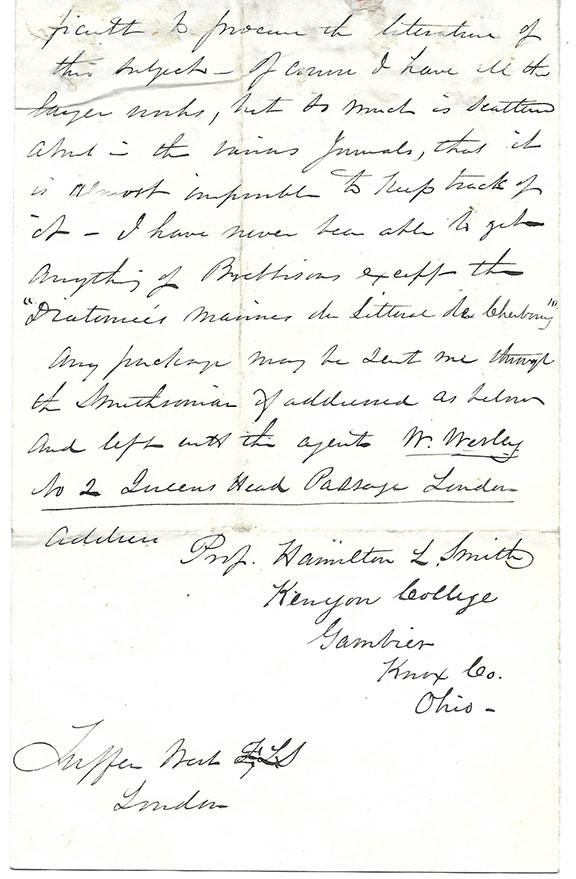 ficult to procure the literature of
this subject – Of course I have all the
larger works, but so much is scattered
about in the various Journals, that it
is almost impossible to keep track of
it – I have never been able to get
anything of Brebissons except the
"Diatomées marines du Littoral de Cherbourg"
Any package may be sent me through
the Smithsonian if addressed as below
and left with the agent W. Wesley
No 2 Queens Head Passage London
Address
Prof. Hamilton L. Smith
Kenyon College
Gambier
Knox Co.
Ohio –
Tuffen West FLS
London